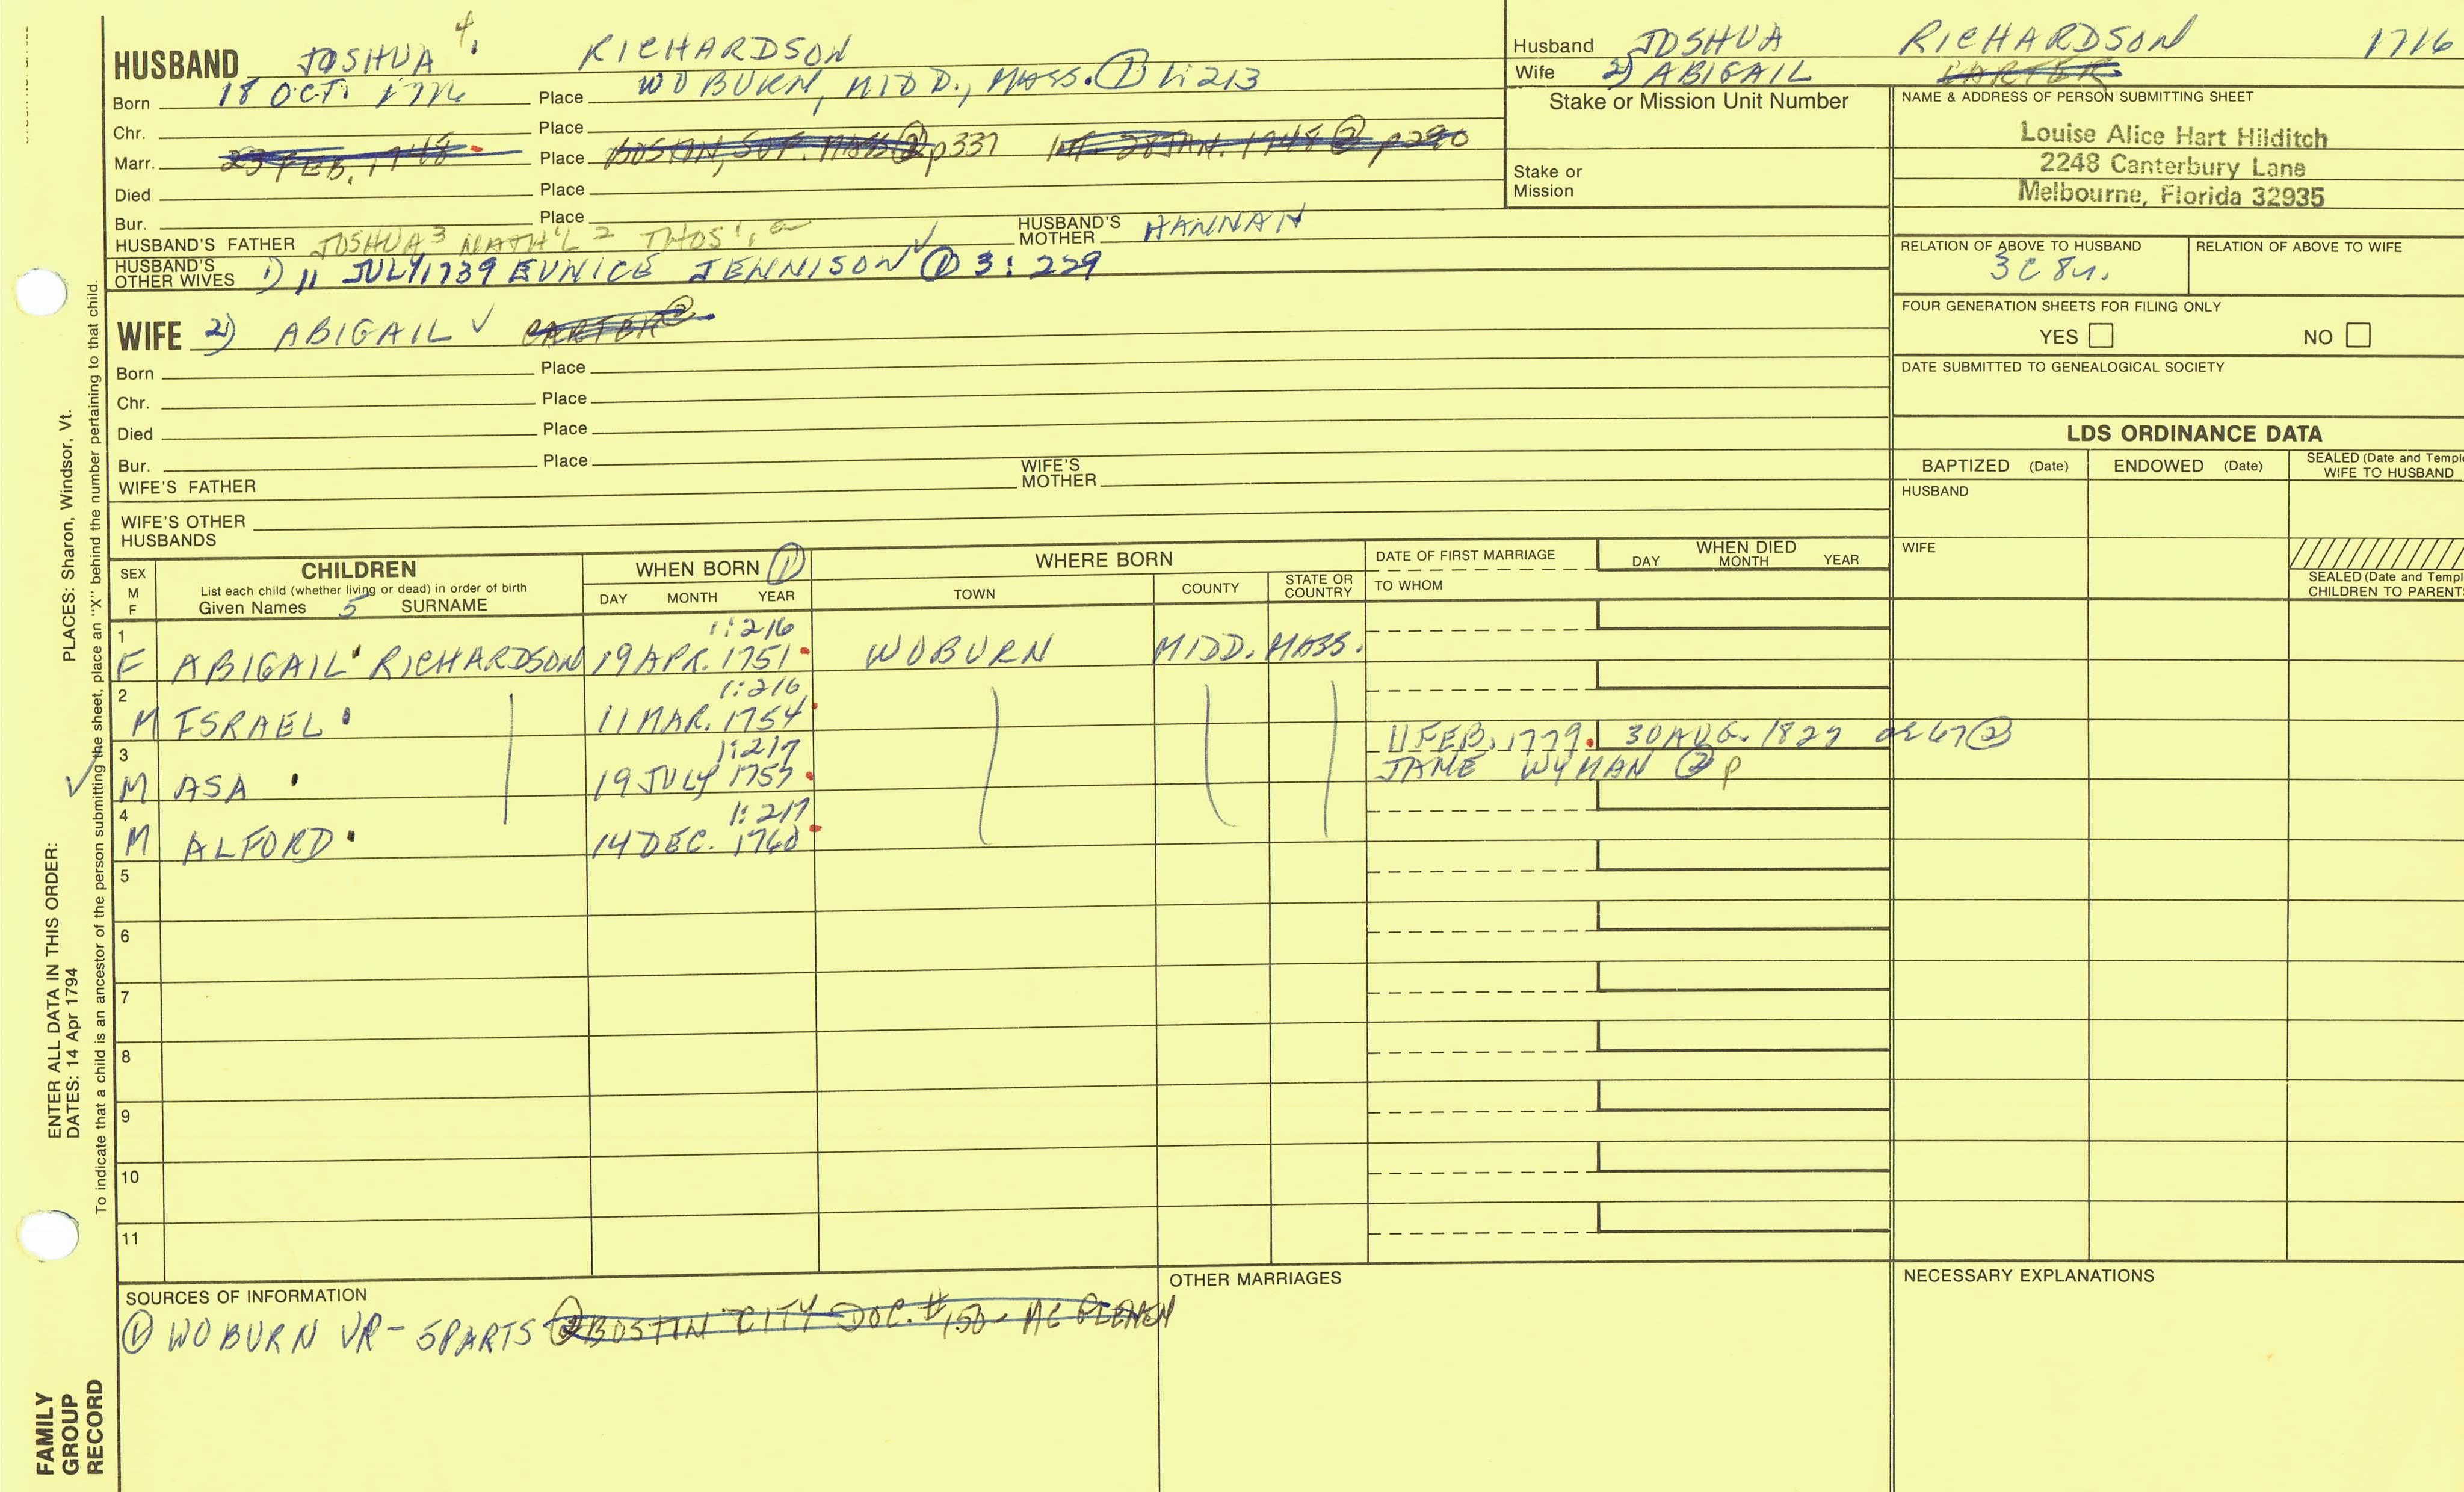 HUSBAND JOSHUA 4. RICHARDSON
Born 18 OCT. 1716 Place WOBURN, MIDD., MASS. ① 1:213
Chr. Place
Marr. 23 FEB. 1748 Place BOSTON, SUF. MASS ② p337 INT. 28 JAN. 1748 ② p290
Died Place
Bur. Place
HUSBAND'S FATHER JOSHUA 3 NATH'L 2 THOS 1 HUSBAND'S MOTHER HANNAH
HUSBAND'S OTHER WIVES 1) 11 JULY 1739 EUNICE JENNISON ① 3:229
WIFE 2) ABIGAIL CARTER ②
Born Place
Chr. Place
Died Place
Bur. Place
WIFE'S FATHER WIFE'S MOTHER
WIFE'S OTHER HUSBANDS
Husband JOSHUA RICHARDSON 1716
Wife 2) ABIGAIL CARTER
Stake or Mission Unit Number
Stake or Mission
NAME & ADDRESS OF PERSON SUBMITTING SHEET
Louise Alice Hart Hilditch
2248 Canterbury Lane
Melbourne, Florida 32935
RELATION OF ABOVE TO HUSBAND RELATION OF ABOVE TO WIFE
3C 8r.
FOUR GENERATION SHEETS FOR FILING ONLY
YES NO
DATE SUBMITTED TO GENEALOGICAL SOCIETY
LDS ORDINANCE DATA
BAPTIZED (Date) ENDOWED (Date) SEALED (Date and Temple) WIFE TO HUSBAND
HUSBAND
WIFE
SEALED (Date and Temple) CHILDREN TO PARENTS
SEX M F
CHILDREN
List each child (whether living or dead) in order of birth
Given Names 5 SURNAME
WHEN BORN ①
DAY MONTH YEAR
WHERE BORN
TOWN COUNTY STATE OR COUNTRY
DATE OF FIRST MARRIAGE
TO WHOM
WHEN DIED
DAY MONTH YEAR
1 1:216
F ABIGAIL RICHARDSON 19 APR. 1751 WOBURN MIDD. MASS.
2 1:216
M ISRAEL 11 MAR. 1754
3 1:217 11 FEB. 1779 30 AUG.
M ASA 19 JULY 1757 JANE WYMAN ② p
4 1:217
M ALFORD 14 DEC. 1760
5
6
7
8
9
10
11
SOURCES OF INFORMATION
① WOBURN VR - 5PARTS ② BOSTIN CITY DOC. #150-
OTHER MARRIAGES
NECESSARY EXPLANATIONS
PLACES: Sharon, Windsor, Vt.
ENTER ALL DATA IN THIS ORDER:
DATES: 14 Apr 1794
To indicate that a child is an ancestor of the person submitting the sheet, place an "X" behind the number pertaining to that child.
FAMILY
GROUP
RECORD